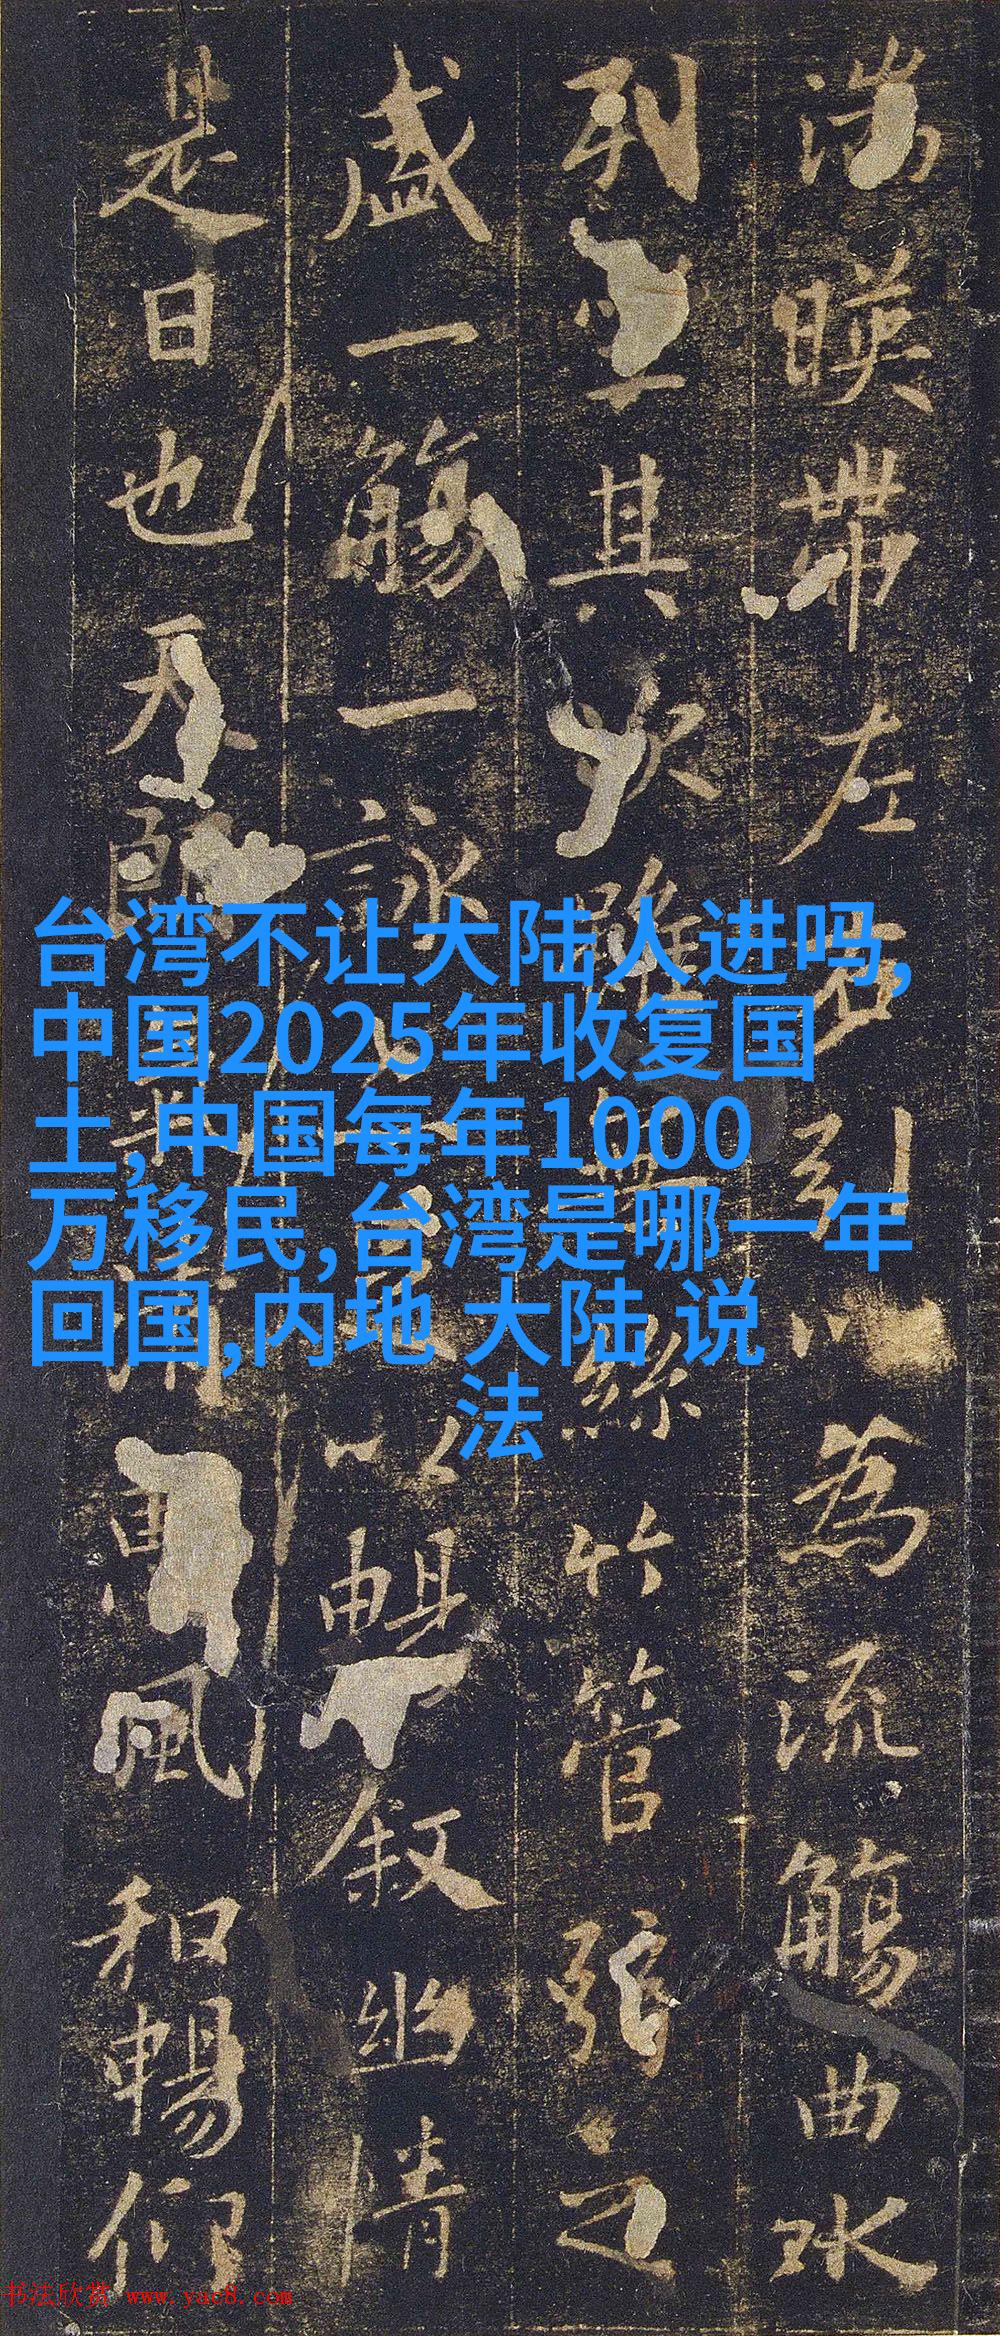 湍暎帶左右引以為流觴曲水
列坐其次雖無絲竹管弦之
盛一觴一詠以暢叙幽情
是日也天朗清惠風和暢仰
台湾不让大陆人进吗,
中国2025年收复国
土,中国每年1000
万移民,台湾是哪一年
回国,内地 大陆 说
法
书法欣赏 www.yac8.com